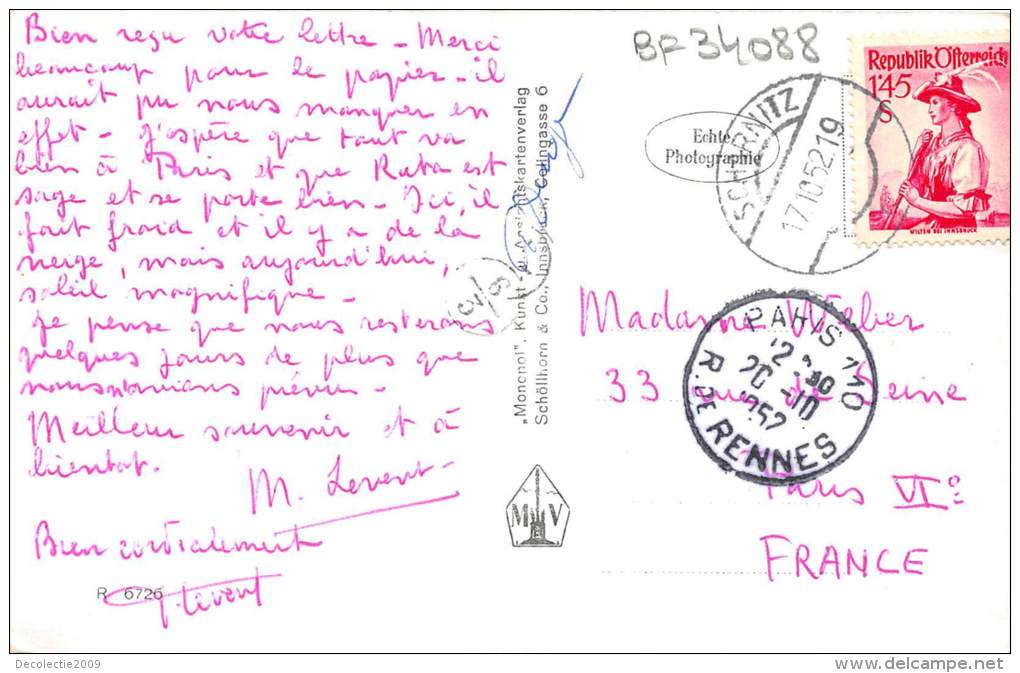 Bien reçu votre lettre - Merci
beaucoup pour le papier - il
aurait pu nous manquer en
effet - J'espère que tout va
bien à Paris et que Kuta est
sage et se porte bien - Ici, il
fait froid et il y a de la
neige, mais aujourd'hui,
soleil magnifique -
Je pense que nous resterons
quelques jours de plus que
nous n'avions prévu -
Meilleur souvenir et à
bientot.
M. Levent
Bien cordialement
J. Levent
R 6726
„Monopol", Kunst- u. Ansichtskartenverlag
Schöllhorn & Co., Innsbruck, Colingasse 6
M V
BF34088
Echte
Photographie
SCHARNITZ
17.10.52.19
Republik Österreich
1'45
S
WILTEN BEI INNSBRUCK
Madame Weber
33 rue de Seine
Paris VIº
FRANCE
PARIS 110
20 -10
1952
R. DE RENNES
Decolectie2009
www.delcampe.net